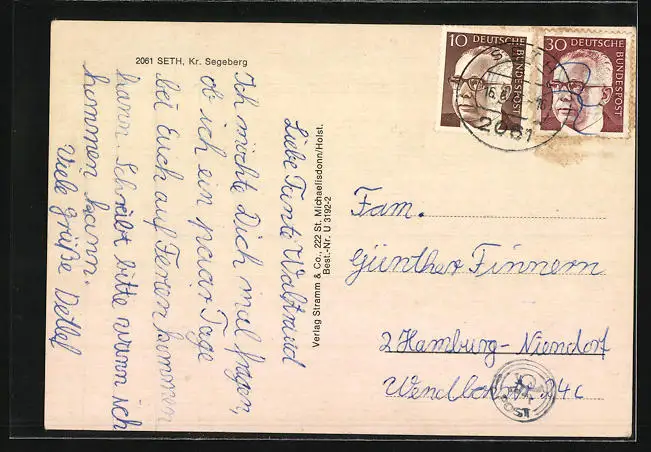 2061 SETH, Kr. Segeberg
Liebe Tante Waltraud
Ich möchte Dich mal fragen,
ob ich ein paar Tage
bei Euch auf Ferien kommen
kann. Schreibt bitte wann ich
kommen kann.
Viele Grüße Detlef
Verlag Stramm & Co., 222 St. Michaelisdonn/Holst.
Best.-Nr. U 3192-2
10 DEUTSCHE
BUNDESPOST
30 DEUTSCHE
BUNDESPOST
2061
Fam.
Günther Finnern
2 Hamburg-Niendorf
24c